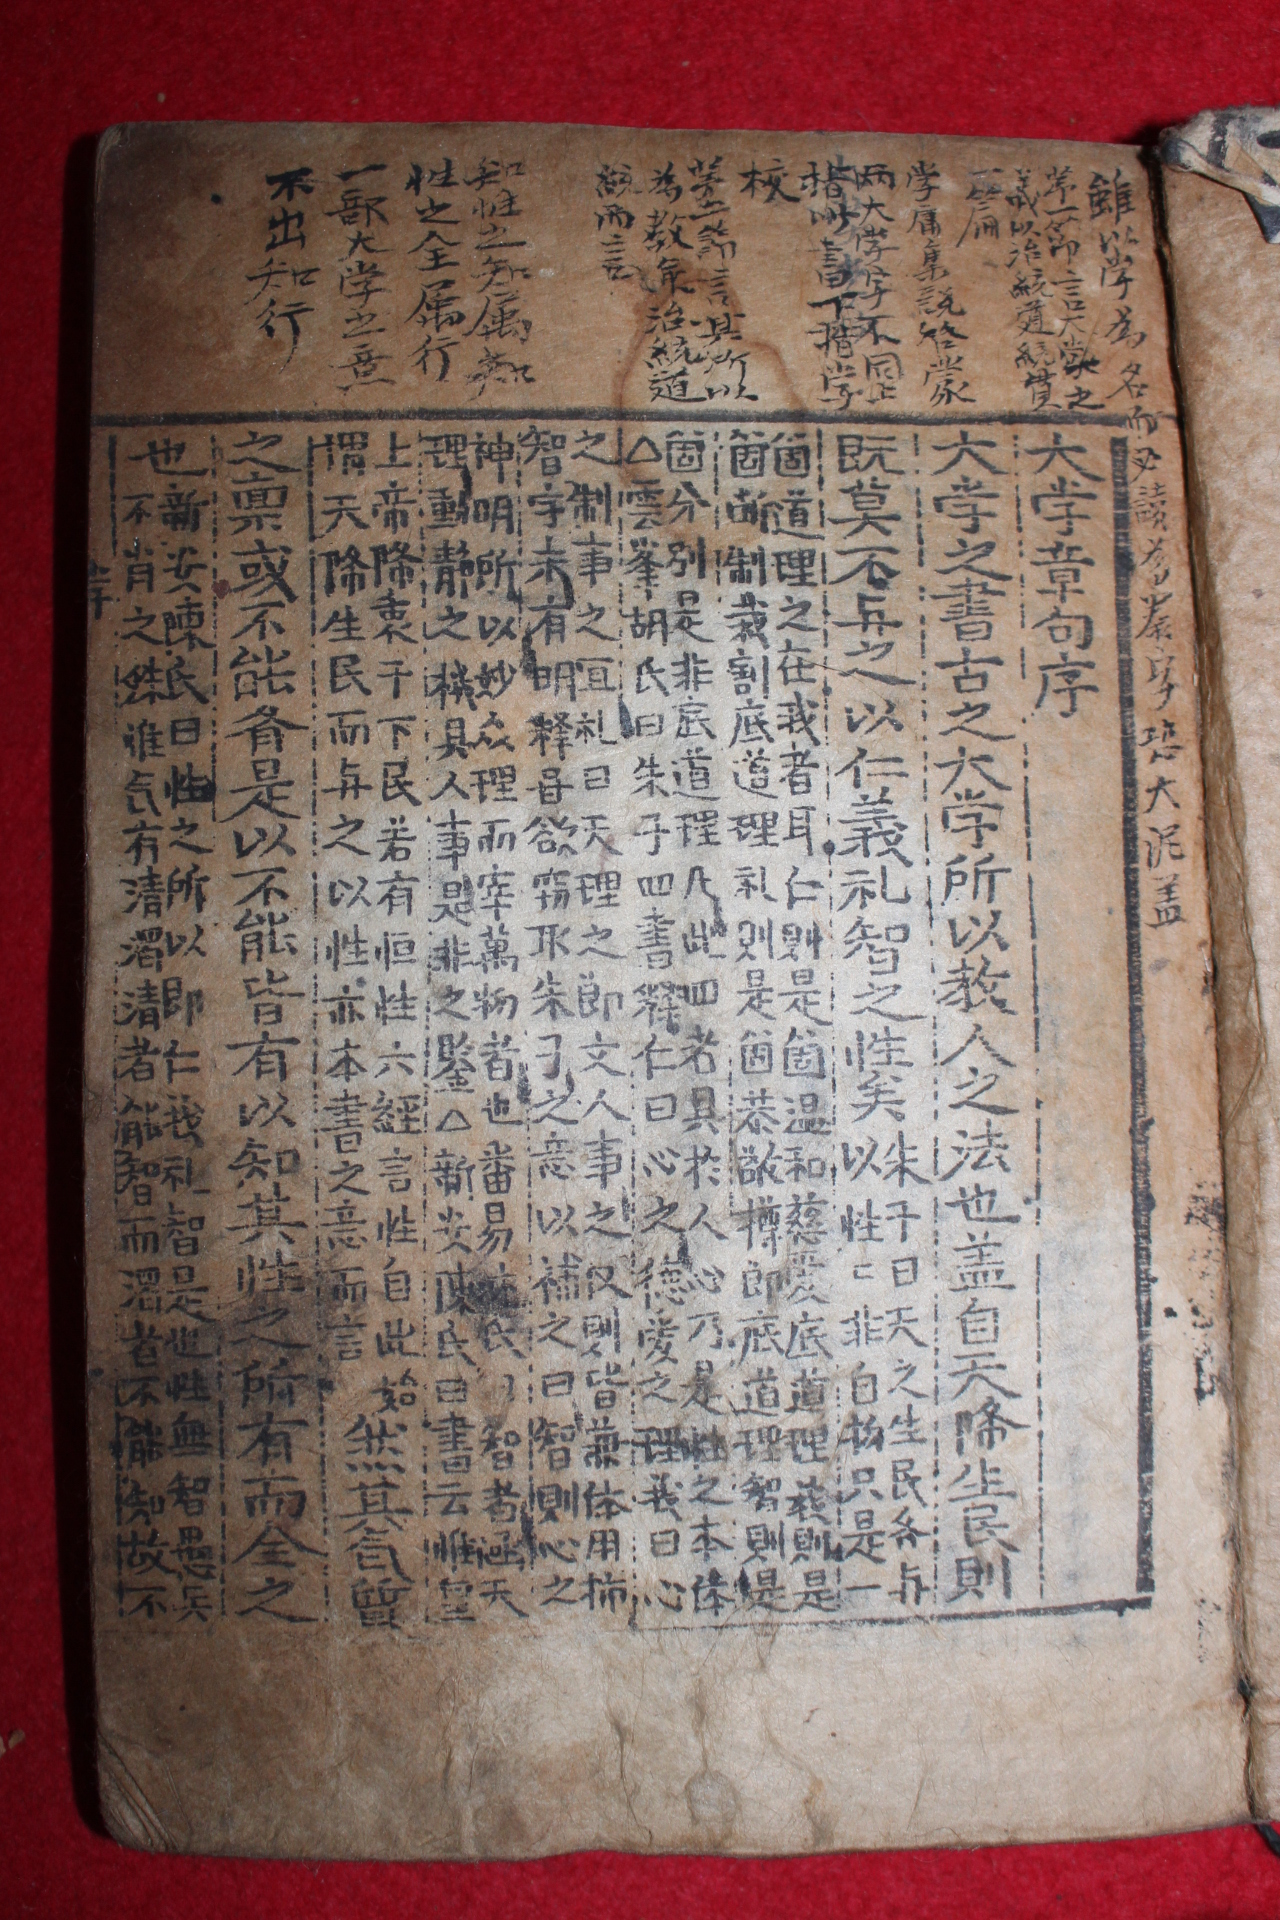 雖以学為名而
第一節言大学之
義以治統道統貫
一篇
学庸集說啓蒙
两大学字不同上
楷以書下楷学
校
第二節言其所以
為教兼治統道
統而言
知性之知属知
性之全属行
一部大学之意
不出知行
大学章句序
大学之書古之大学所以教人之法也盖自天降生民則
既莫不与之以仁義礼智之性矣
朱子曰天之生民各与
以性〻非自物只是一
箇道理之在我者耳仁則是箇温和慈愛底道理義則是
箇断制裁割底道理礼則是箇恭敬撙節底道理智則是
箇分別是非底道理凡此四者具於人心乃是性之本体
△雲峯胡氏曰朱子四書釋仁曰心之德愛之理義曰心
之制事之宜礼曰天理之節文人事之仪則皆兼体用
智字未有明釋甞欲窃取朱子之意以補之曰智則心之
神明所以妙众理而宰萬物者也番易沈氏曰智者涵天
理動静之機具人事是非之鑒△新安陳氏曰書云惟皇
上帝降衷于下民若有恒性六經言性自此始
謂天降生民而与之以性亦本書之意而言
然其气質
之禀或不能齐是以不能皆有以知其性之所有而全之
也新安陳氏曰性之所以即仁義礼智是也性無智愚
不肖之殊惟气有清濁清者能智而濁者不能知故不